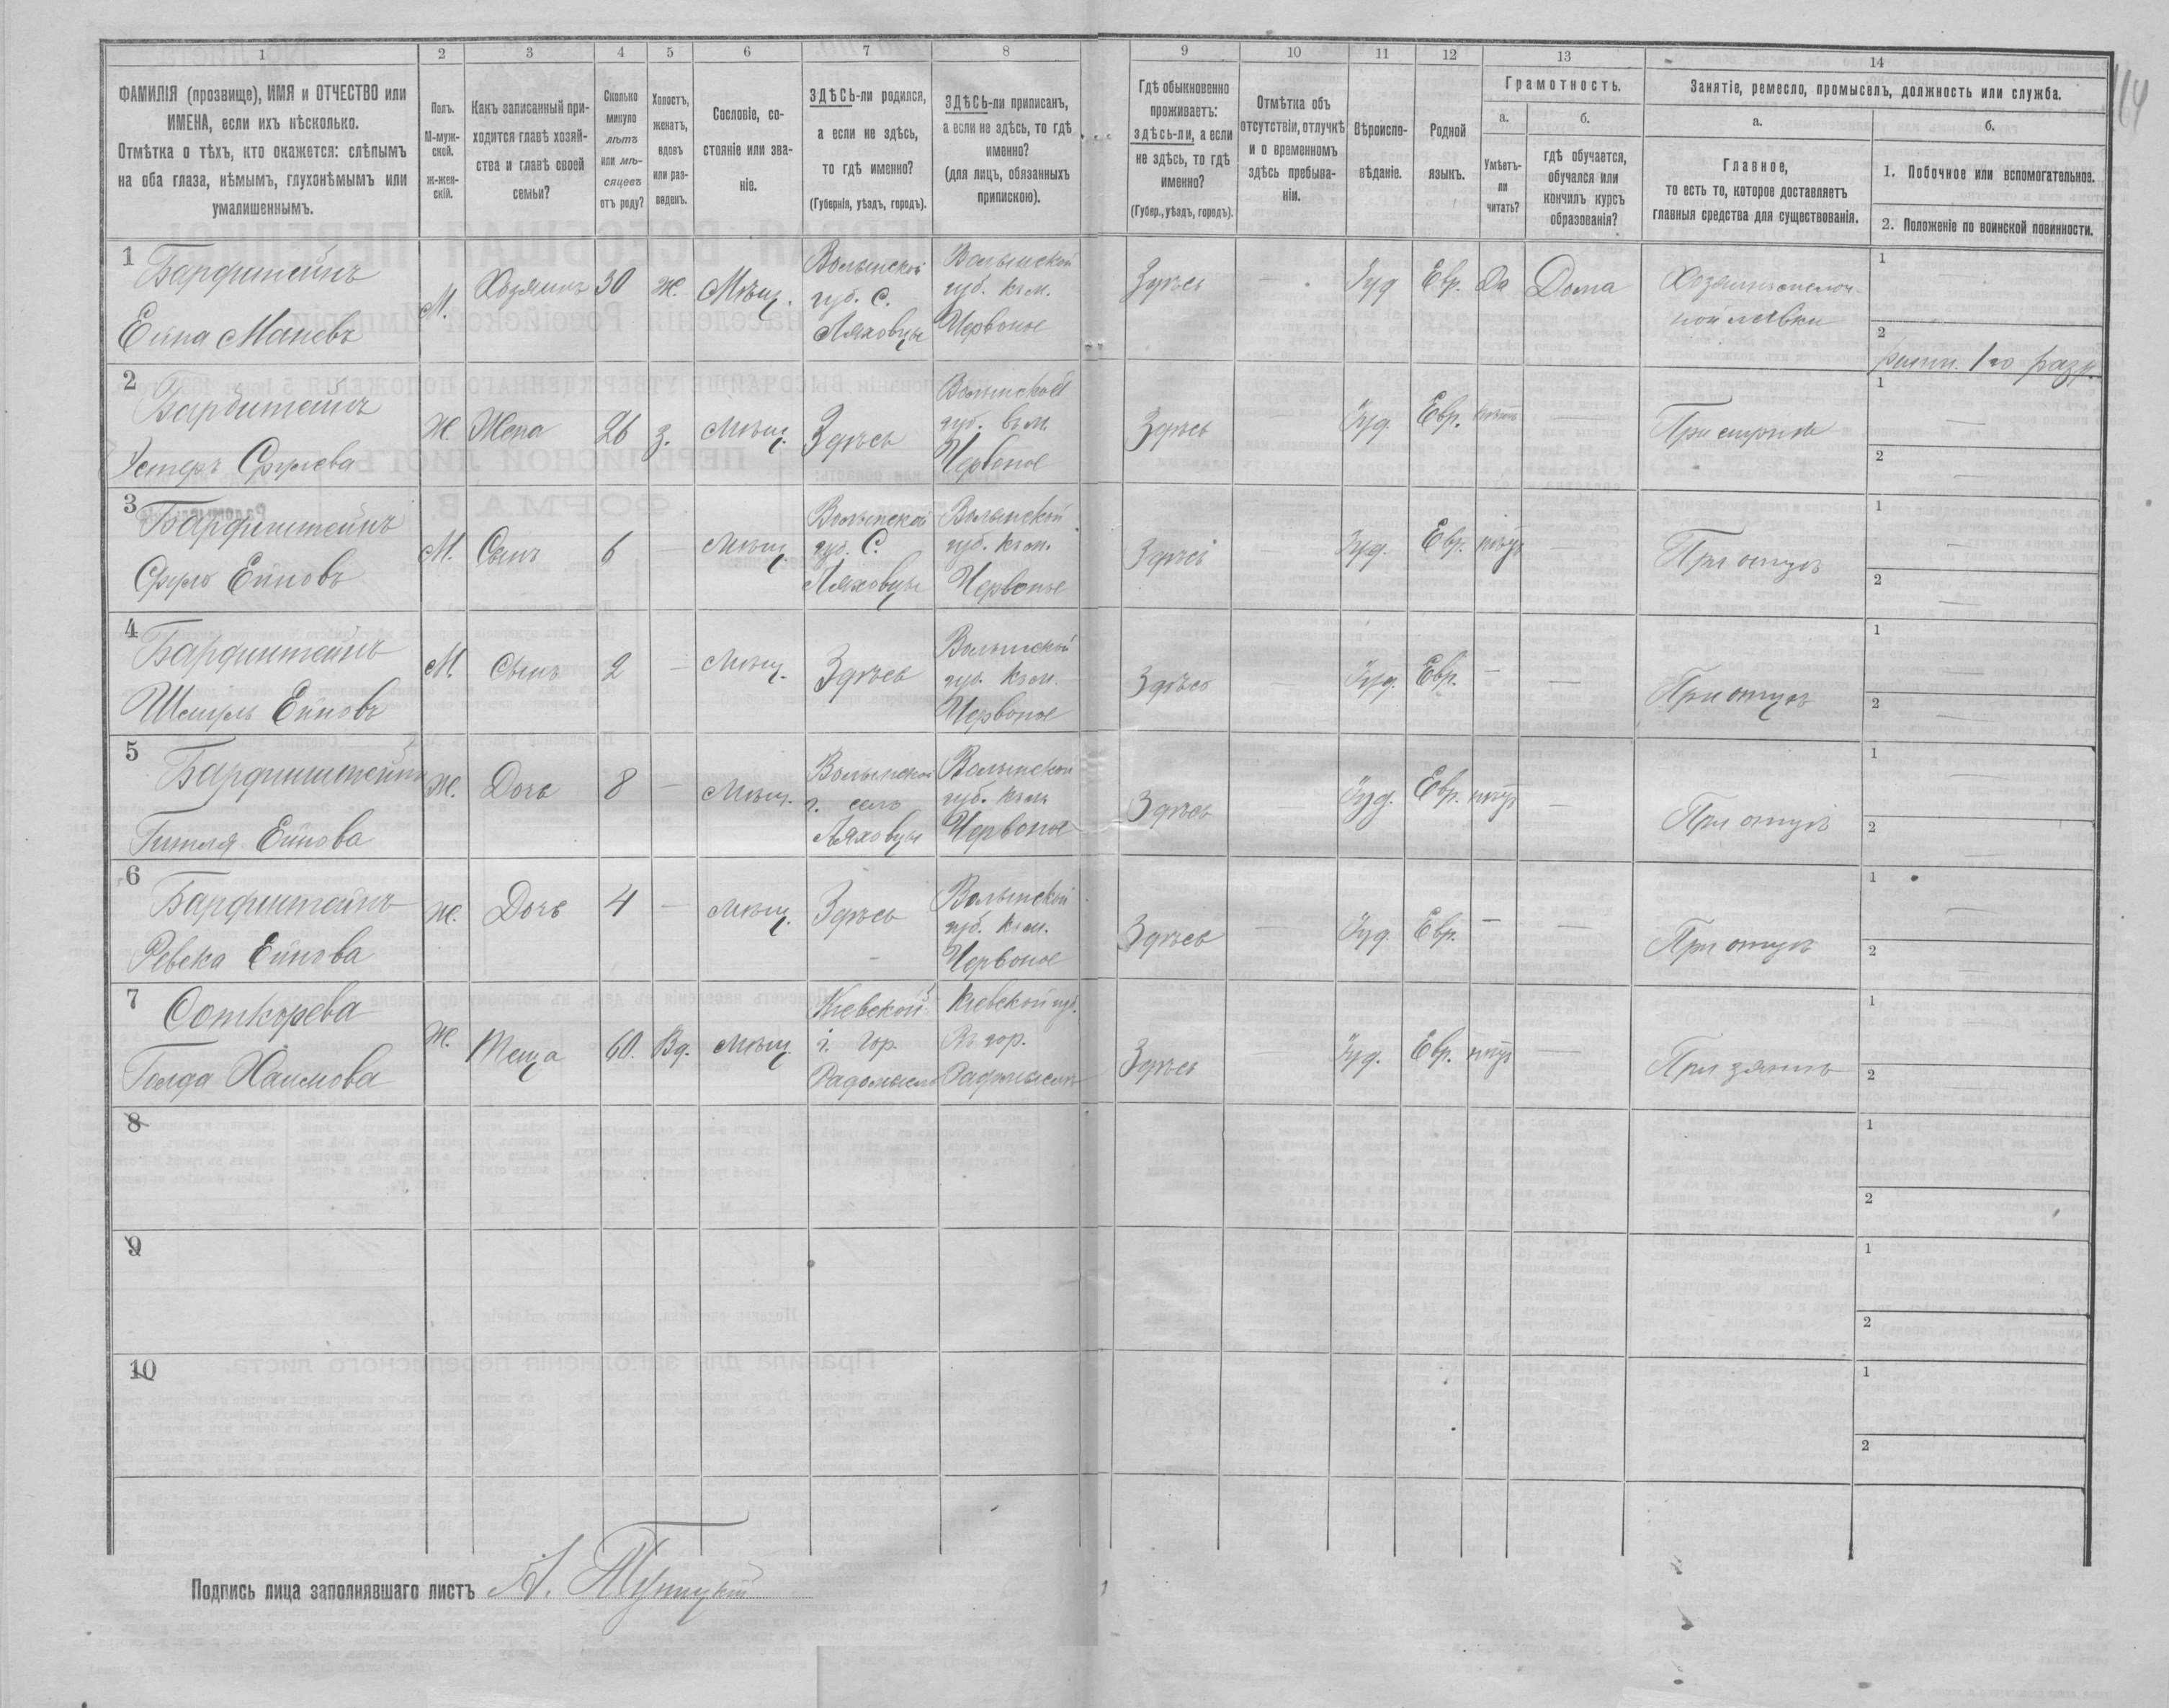 1
2
3
4
5
6
7
8
9
10
11
12
13
14
ФАМИЛІЯ (прозвище), ИМЯ и ОТЧЕСТВО или
ИМЕНА, если ихъ нѣсколько.
Отмѣтка о тѣхъ, кто окажется: слѣпымъ
на оба глаза, нѣмымъ, глухонѣмымъ или
умалишеннымъ.
Полъ.
М-муж-
ской.
ж-жен-
скій.
Какъ записанный при-
ходится главѣ хозяй-
ства и главѣ своей
семьи?
Сколько
минуло
лѣтъ
или мѣ-
сяцевъ
отъ роду?
Холостъ,
женатъ,
вдовъ
или раз-
веденъ.
Сословіе, со-
стояніе или зва-
ніе.
ЗДѢСЬ-ли родился,
а если не здѣсь,
то гдѣ именно?
(Губернія, уѣздъ, городъ).
ЗДѢСЬ-ли приписанъ,
а если не здѣсь, то гдѣ
именно?
(для лицъ, обязанныхъ
припискою).
Гдѣ обыкновенно
проживаетъ:
здѣсь-ли, а если
не здѣсь, то гдѣ
именно?
(Губер., уѣздъ, городъ).
Отмѣтка объ
отсутствіи, отлучкѣ
и о временномъ
здѣсь пребыва-
ніи.
Вѣроиспо-
вѣданіе.
Родной
языкъ.
Грамотность.
а.
Умѣетъ-
ли
читать?
б.
гдѣ обучается,
обучался или
кончилъ курсъ
образованія?
Занятіе, ремесло, промыселъ, должность или служба.
а.
Главное,
то есть то, которое доставляетъ
главныя средства для существованія.
б.
1. Побочное или вспомогательное.
2. Положеніе по воинской повинности.
164
1
Барфштейнъ
М.
Хозяинъ
30
Ж.
Мѣщ.
Волынской
губ. С.
Ляховцы
Волынской
губ. къ м.
Червоное
Здѣсь
Іуд
Евр.
Да
Дома
Хозяинъ мелоч-
ной лавки
1
2
ратн. 1го разр.
2
Ж.
Жена
26
З.
Мѣщ.
Здѣсь
Волынской
губ. въ м.
Червоное
Здѣсь
Іуд.
Евр.
При мужѣ
1
2
3
Барфинштейнъ
М.
Сынъ
6
Мѣщ.
Волынской
губ. С.
Ляховцы
Волынской
губ. къ м.
Червоное
Здѣсь
Іуд.
Евр.
нѣтъ
При отцѣ
1
2
4
Барфинштейнъ
Шмуль Ейновъ
М.
Сынъ
2
Мѣщ.
Здѣсь
Волынской
губ. къ м.
Червоное
Здѣсь
Іуд.
Евр.
При отцѣ
1
2
5
Барфинштейнъ
Гитля Ейнова
Ж.
Дочь
8
Мѣщ.
Волынской
г. село
Ляховцы
Волынской
губ. къ м.
Червоное
Здѣсь
Іуд.
Евр.
нѣтъ
При отцѣ
1
2
6
Барфинштейнъ
Ревека Ейнова
Ж.
Дочь
4
Мѣщ.
Здѣсь
Волынской
губ. къ м.
Червоное
Здѣсь
Іуд.
Евр.
При отцѣ
1
2
7
Голда Хаимова
Ж.
Теща
60.
Вд.
Мѣщ.
Кіевской
г. гор.
Радомысль
Кіевской губ.
Въ гор.
Радомыслѣ
Здѣсь
Іуд.
Евр.
нѣтъ
При зятѣ
1
2
8
1
2
9
1
2
10
1
2
Подпись лица заполнявшаго листъ